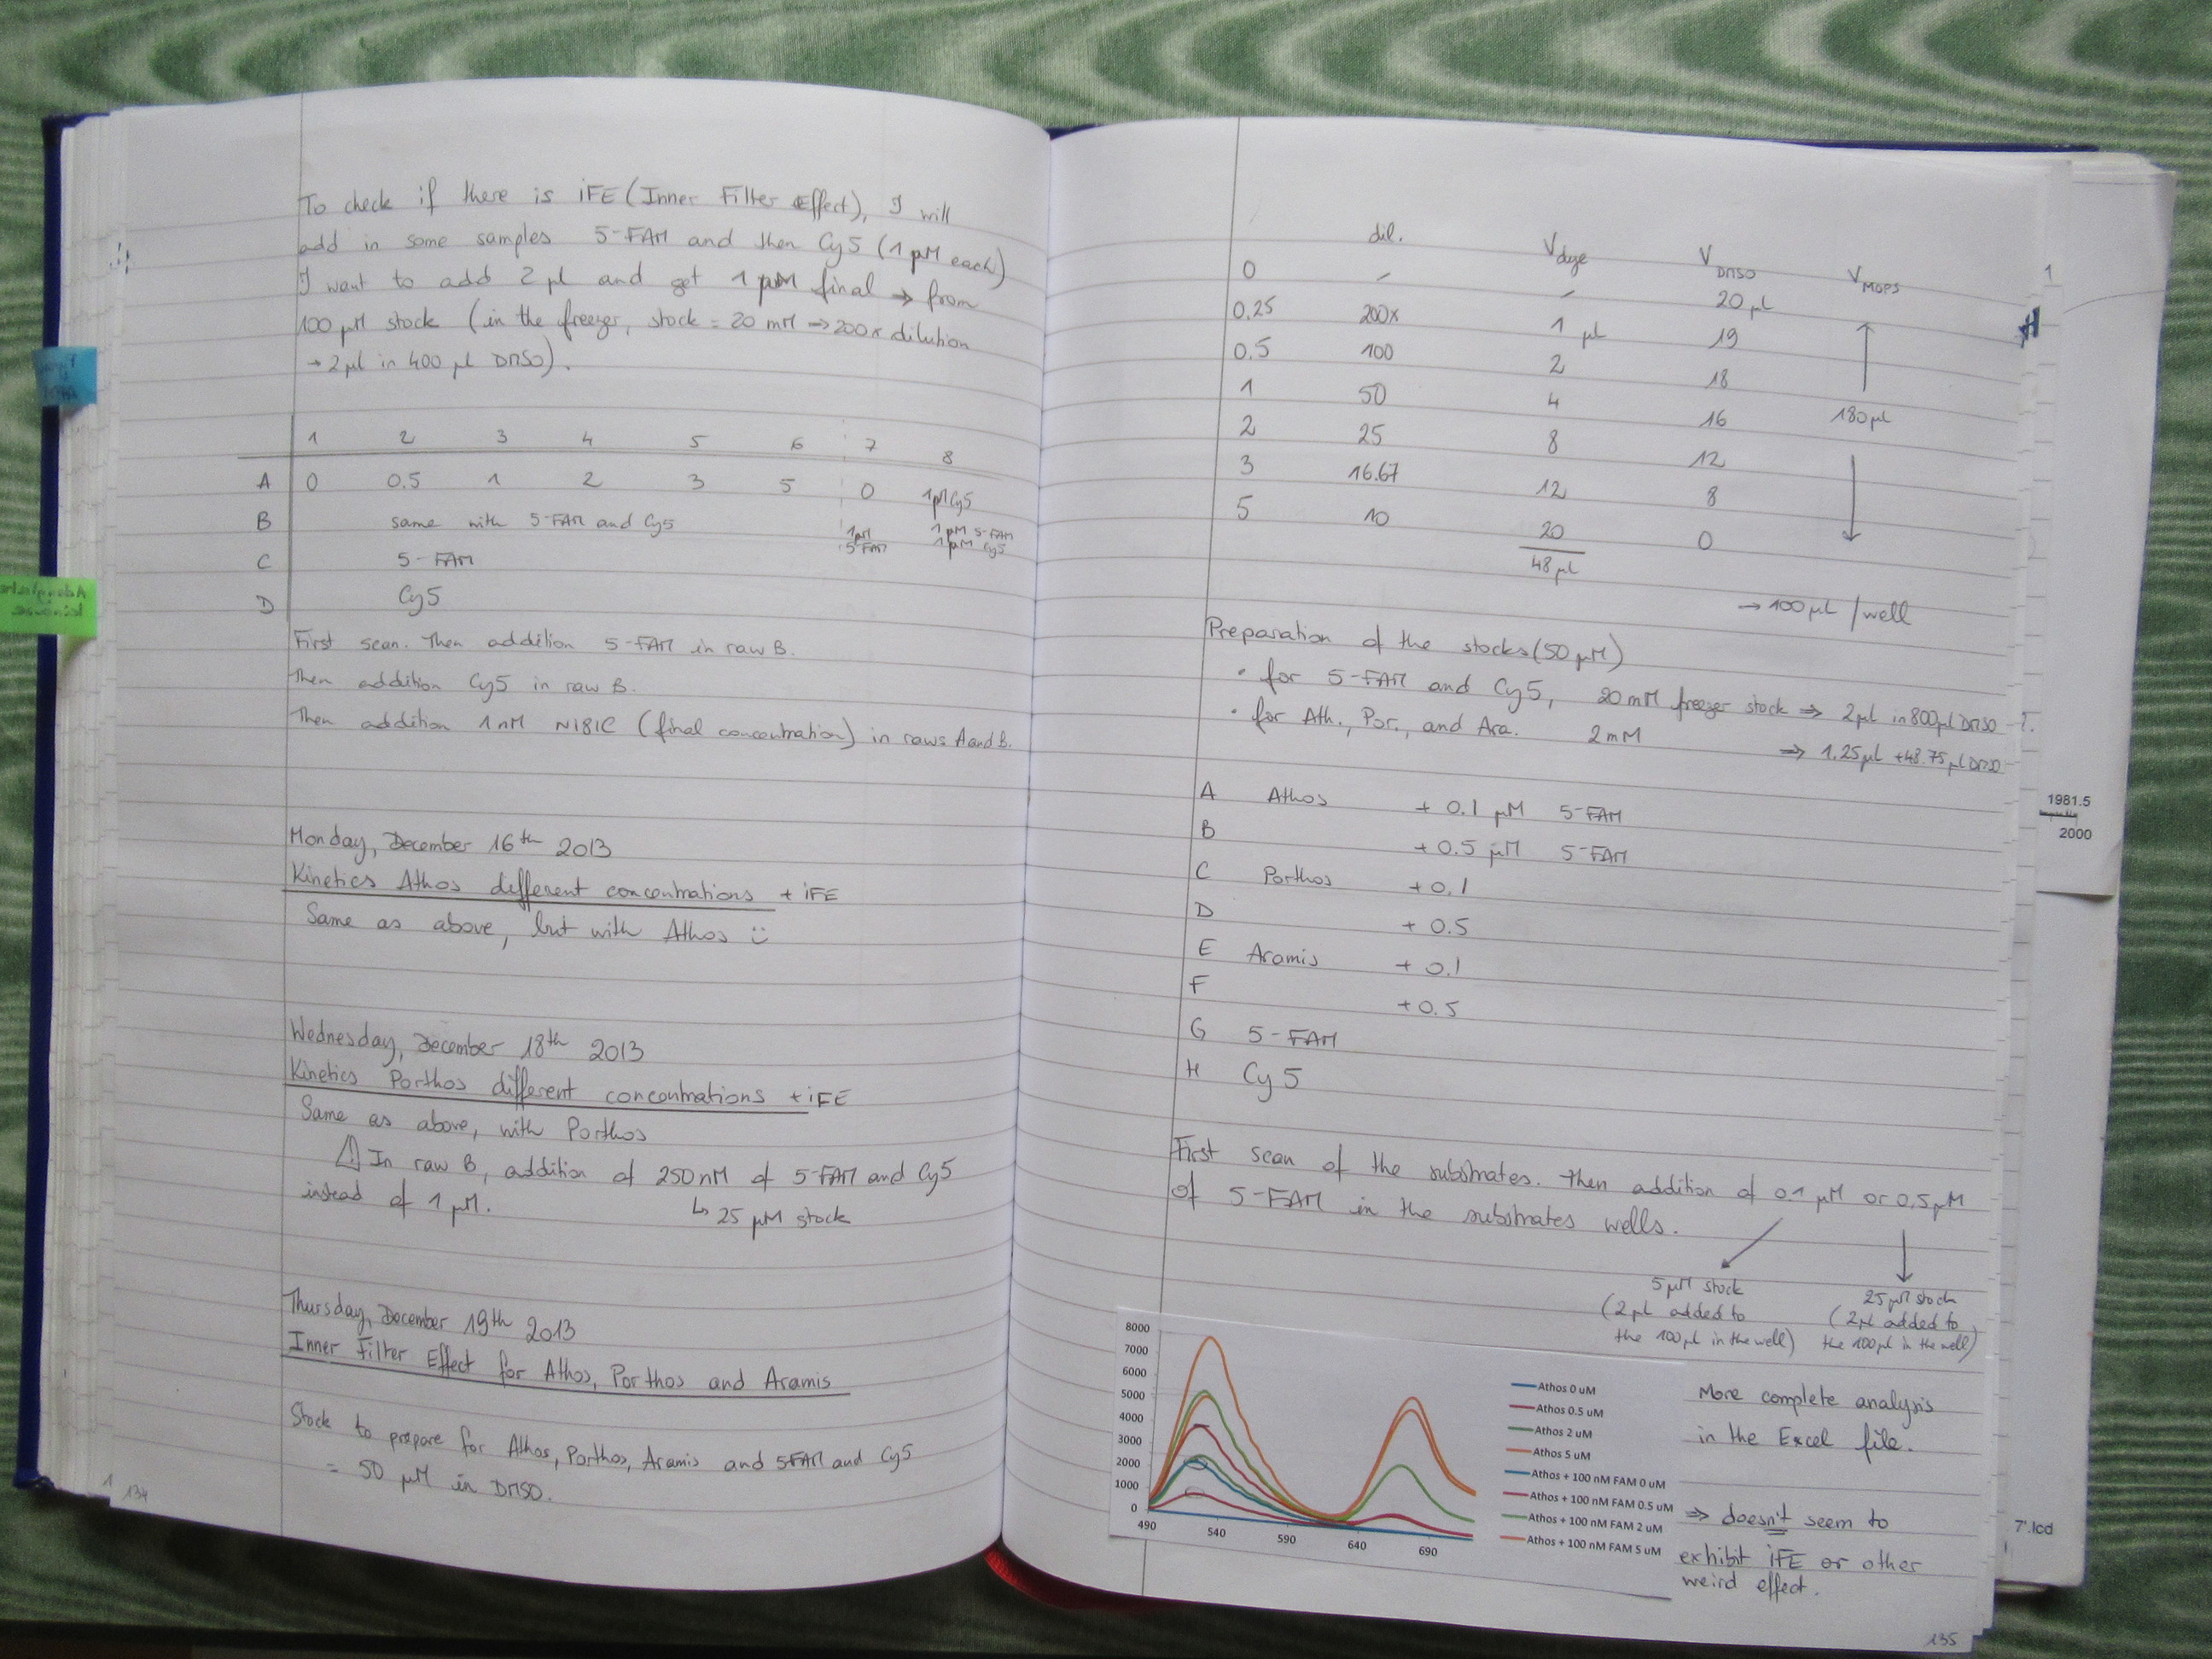 To check if there is iFE (Inner Filter Effect), I will
add in some samples 5-FAM and then Cy5 (1 µM each)
I want to add 2 µl and get 1 µM final → from
100 µM stock (in the freezer, stock = 20 mM → 200x dilution
→ 2 µl in 400 µl DMSO).
1 2 3 4 5 6 7 8
A 0 0.5 1 2 3 5 0 1µM Cy5
B same with 5-FAM and Cy5 1µM 5-FAM 1µM 5-FAM 1µM Cy5
C 5-FAM
D Cy5
First scan. Then addition 5-FAM in raw B.
Then addition Cy5 in raw B.
Then addition 1 nM N181C (final concentration) in raws A and B.
Monday, December 16th 2013
Kinetics Athos different concentrations + iFE
Same as above, but with Athos
Wednesday, December 18th 2013
Kinetics Porthos different concentrations + iFE
Same as above, with Porthos
⚠ In raw B, addition of 250 nM of 5-FAM and Cy5
instead of 1 µM. ↳ 25 µM stock
Thursday, December 19th 2013
Inner Filter Effect for Athos, Porthos and Aramis
Stock to prepare for Athos, Porthos, Aramis and 5FAM and Cy5
= 50 µM in DMSO.
134
dil. Vdye VDMSO VMOPS
0 - - 20 µl
0.25 200x 1 µl 19
0.5 100 2 18
1 50 4 16 180 µl
2 25 8 12
3 16.67 12 8
5 10 20 0
48 µl
→ 100 µL / well
Preparation of the stocks (50 µM)
• for 5-FAM and Cy5, 20 mM freezer stock ⇒ 2µl in 800µl DMSO
• for Ath., Por., and Ara. 2 mM ⇒ 1.25µl + 48.75µl DMSO
A Athos + 0.1 µM 5-FAM
B + 0.5 µM 5-FAM
C Porthos + 0.1
D + 0.5
E Aramis + 0.1
F + 0.5
G 5-FAM
H Cy 5
First scan of the substrates. Then addition of 0.1 µM or 0.5 µM
of 5-FAM in the substrates wells.
5 µM stock
(2 µl added to
the 100 µl in the well)
25 µM stock
(2µl added to
the 100 µl in the well)
8000
7000
6000
5000
4000
3000
2000
1000
0
490 540 590 640 690
Athos 0 uM
Athos 0.5 uM
Athos 2 uM
Athos 5 uM
Athos + 100 nM FAM 0 uM
Athos + 100 nM FAM 0.5 uM
Athos + 100 nM FAM 2 uM
Athos + 100 nM FAM 5 uM
More complete analysis
in the Excel file.
⇒ doesn't seem to
exhibit iFE or other
weird effect.
135
1981.5
2000
7'.lcd